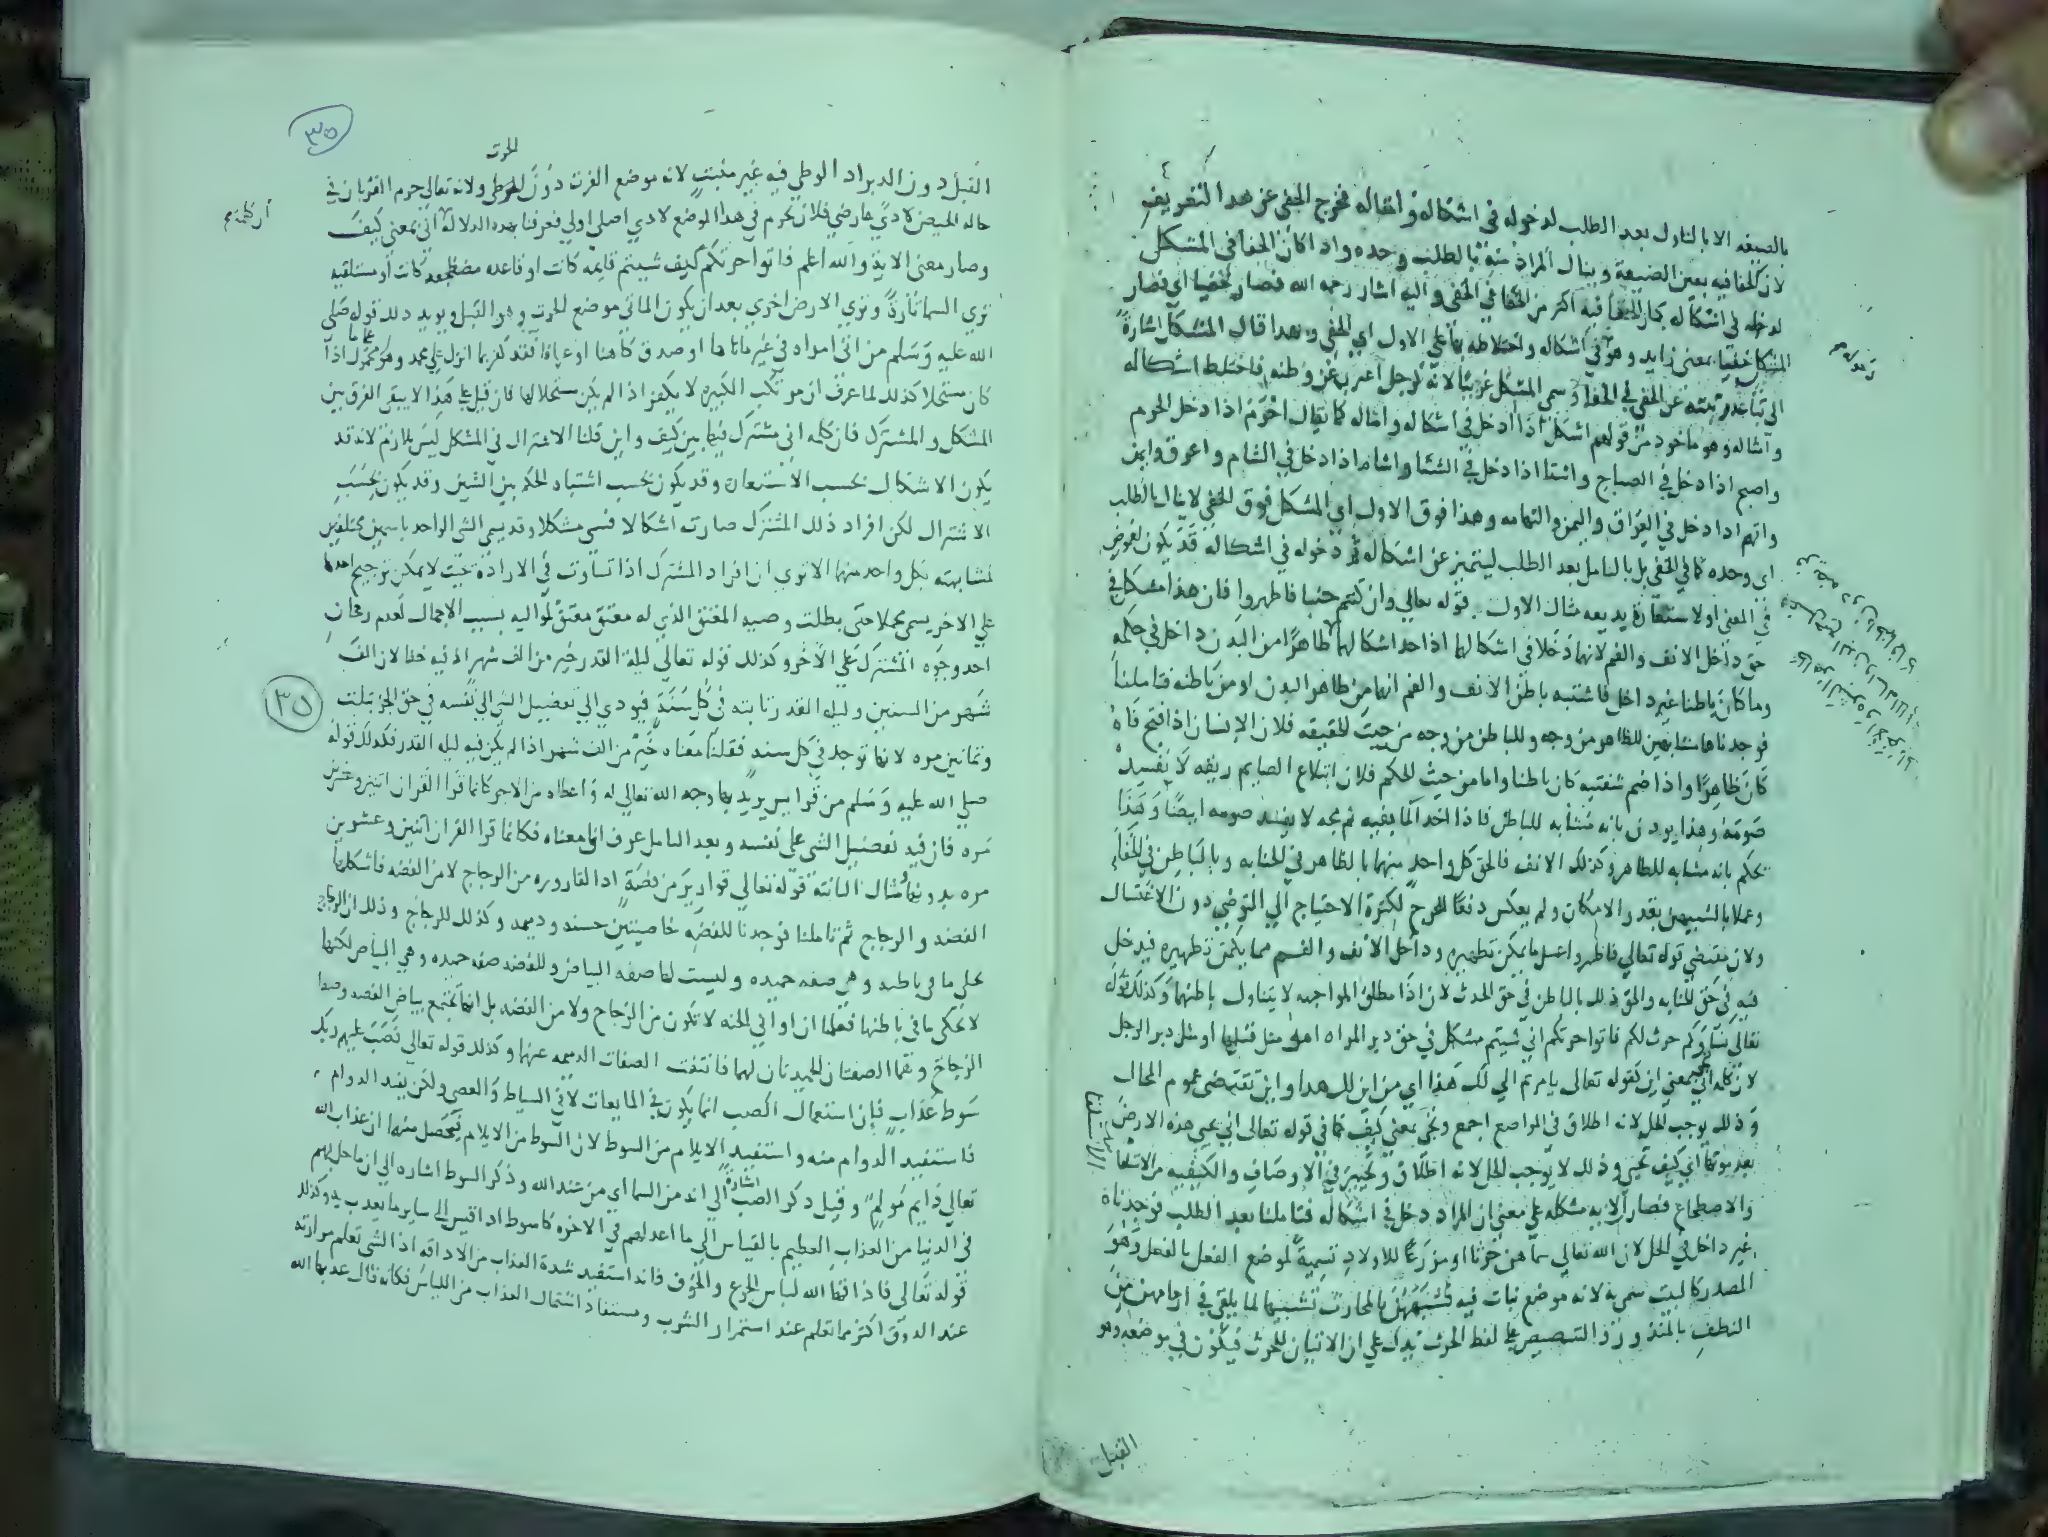 بالصيغه الا بالتاول بعد الطلب لدخوله في اشكاله وامثاله فخرج الخفي عن هدا التعريف
لان الخفا فيه بعين الصيغة وينال المراد منه بالطلب وحده واذا كان الخفا في المشكل
لدخوله في اشكاله كان الخفا فيه اكثر من الخفا في الخفي واليه اشار رحمه الله فصار خفيا اي فصار
المشكل خفيا بمعنى زايد وهو في اشكاله واختلاطه بها على الاول اي الخفي وبهدا قال المشكل اشارة
الى تباعد رتبته عن الخفي في الخفا وسمي المشكل غريبا لانه كرجل اغترب عن وطنه فاختلط اشكاله
وامثاله وهو ماخوذ من قولهم اشكل اذا ادخل في اشكاله وامثاله كما يقال احرم اذا دخل الحرم
واصبح اذا دخل في الصباح واشتا اذا دخل في الشتا واشام اذا دخل في الشام واعرق وايمن
واتهم اذا دخل في العراق واليمن والتهامه وهذا فوق الاول اي المشكل فوق الخفي لا ينال بالطلب
اي وحده كما في الخفي بل بالتامل بعد الطلب ليتميز عن اشكاله ثم دخوله في اشكاله قد يكون لغموض
في المعنى او لاستعارة بديعه مثال الاول قوله تعالى وان كنتم جنبا فاطهروا فان هذا مشكل في
حق داخل الانف والفم لانهما دخلا في اشكالهما
وما كان باطنا غير داخل فاشتبه باطن الانف والفم انهما من ظاهر البدن او من باطنه فتاملنا
فوجدناهما مشابهين للظاهر من وجه وللباطن من وجه من حيث الحقيقه فلان الانسان اذا فتح فاه
كان ظاهرا واذا ضم شفتيه كان باطنا واما من حيث الحكم فلان ابتلاع الصايم ريقه لا يفسد
صومه وهذا يوذن بانه مشابه للباطن فاذا اخذ الما بفيه ثم مجه لا يفسد صومه ايضا وهذا
يحكم بانه مشابه للظاهر وكذلك الانف فالحق كل واحد منهما بالظاهر في الجنابه وبالباطن في
وعملا بالشبهين بقدر الامكان ولم يعكس دفعا للحرج لكثرة الاحتياج الي التوضي دون الاغتسال
ولان مقتضي قوله تعالى فاطهروا غسل ما يمكن تطهيره وداخل الانف والفم مما يمكن تطهيره فيدخل
فيه في حق الجنابه والحق ذلك بالباطن في حق الحدث لان مطلق المواجهه لا يتناول باطنهما وكذلك قوله
تعالى نساوكم حرث لكم فاتوا حرثكم اني شيتم مشكل في حق دبر المراه اهو مثل قبلها او مثل دبر الرجل
لان كلمه اني تجي بمعني اين كقوله تعالى يا مريم اني لك هذا اي من اين لك هدا واين تقتضى عموم المحال
وذلك يوجب الحل لانه اطلاق في المواضع اجمع وتجي بمعني كيف كما في قوله تعالى اني يحيي هذه الارض
بعد موتها اي كيف يحيي وذلك لا يوجب الحل لانه اطلاق وتخيير في الاوصاف والكيفيه من الاستلقا
والاضطجاع فصار الايه مشكله علي معني ان المراد دخل في اشكاله فتاملنا بعد الطلب فوجدناه
غير داخل في الحل لان الله تعالى سماهن حرثا اي مزرعا للاولاد تسمية لموضع الفعل بالفعل وهو
المصدر كالبيت سمي به لانه موضع يبات فيه فشبههن بالمحارث تشبيها لما يلقى في ارحامهن من
النطف بالبذر وذا التنصيص على لفظ الحرث يدل على ان الاتيان للحرث فيكون في موضعه وهو
القبل
الاستلقا
٣٥
الحرث
القبل دون الدبر اذ الوطي فيه غير منبت لانه موضع الفرث دون الحرث ولانه تعالى حرم القربان في
حاله الحيض لاذى عارضي فلان يحرم في هذا الموضع لاذي اصلي اولي فعرفنا بهذه الدلاله ان اني بمعنى كيف
وصار معنى الايه والله اعلم فاتوا حرثكم كيف شيتم قايمه كانت او قاعده مضطجعه كانت او مستلقيه
تري السما تارة وتري الارض اخري بعد ان يكون الماتي موضع الحرث وهو القبل ويويد ذلك قوله صلى
الله عليه وسلم من اتى امراه في غير ماتاها او صدق كاهنا او عرافا فقد كفر بما انزل على محمد وهو محمول على ما اذا
كان مستحلا كذلك لما عرف ان مرتكب الكبيره لا يكفر اذا لم يكن مستحلا لها فان قيل على هذا لا يبقى الفرق بين
المشكل والمشترك فان كلمه اني مشترك فيها بين كيف واين قلنا الاشتراك في المشكل ليس بلازم لانه قد
يكون الاشكال بحسب الاستعاره وقد يكون بحسب اشتباه الحكم بين الشيين وقد يكون بحسب
الاشتراك لكن افراد ذلك المشترك صارت اشكالا فسمي مشكلا وقد يسمى الشي الواحد باسمين مختلفين
لمشابهته بكل واحد منهما الا تري ان افراد المشترك اذا تساوت في الاراده بحيث لا يمكن ترجيح احدها
علي الاخر يسمى مجملا حتى بطلت وصيه المعتق الذي له معتق ومعتق لمواليه بسبب الاجمال لعدم رجحان
احد وجوه المشترك على الاخر وكذلك قوله تعالي ليله القدر خير من الف شهر اذ فيه خفا لان الف
٣٥
شهر من السنين وليله القدر ثابته في كل سنة فيودي الي تفضيل الشي الي نفسه في حق الخير بثلث
وثمانين مره لانها توجد في كل سنه فقلنا معناه خير من الف شهر اذا لم يكن فيه ليله القدر فكذلك قوله
صلي الله عليه وسلم من قرا يس يريد بها وجه الله تعالي له واعطاه من الاجر كانما قرا القران اثنين وعشرين
مره فان فيه تفضيل الشي على نفسه وبعد التامل عرف ان معناه فكانما قرا القران اثنين وعشرين
مره بدونها ومثال الثانيه قوله تعالي قوارير من فضة اذا القاروره من الزجاج لا من الفضه فاشكلت
الفضه والزجاج ثم تاملنا فوجدنا للفضه خاصيتين حسنه ودميمه وكذلك للزجاج وذلك ان الزجاج
يحكي ما في باطنه وهي صفه حميده وليست لها صفه البياض وللفضه صفه حميده وهي البياض لكنها
لا تحكى ما في باطنها فعلمنا ان اواني الجنه لا تكون من الزجاج ولا من الفضه بل انها تجتمع بياض الفضه وصفا
الزجاج وبقيا الصفتان الحميدتان لهما فانتفت الصفات الدميمه عنها وكذلك قوله تعالى فصب عليهم ربك
سوط عذاب فان استعمال الصب انما يكون في المايعات لا في السياط والعصي ولكن يفيد الدوام
فاستفيد الدوام منه واستفيد الايلام من السوط لان السوط من الايلام فيحصل منهما ان عذاب الله
تعالي دايم مولم وقيل ذكر الصب اشارة الي انه من السما اي من عند الله وذكر السوط اشاره الي ان ما حل بهم
في الدنيا من العذاب العظيم بالقياس الي ما اعد لهم في الاخره كالسوط اذا قيس الى ساير ما يعدب به وكذلك
قوله تعالى فاذاقها الله لباس الجوع والخوف فانه استفيد شدة العذاب من الاذاقه اذ الشي تعلم مرارته
عند الذوق اكثر مما تعلم عند استمرار الشرب ومستفاد اشتمال العذاب من اللباس فكانه قال عدبها الله